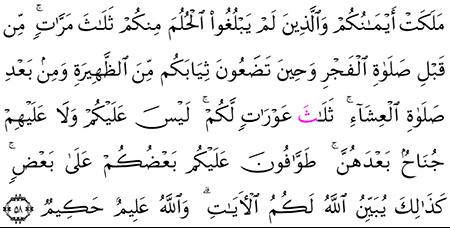 مَلَكَتْ أَيْمَـٰنُكُمْ وَٱلَّذِينَ لَمْ يَبْلُغُوا۟ ٱلْحُلُمَ مِنكُمْ ثَلَـٰثَ مَرَّٰتٍ ۚ مِّن
قَبْلِ صَلَوٰةِ ٱلْفَجْرِ وَحِينَ تَضَعُونَ ثِيَابَكُم مِّنَ ٱلظَّهِيرَةِ وَمِنۢ بَعْدِ
صَلَوٰةِ ٱلْعِشَآءِ ۚ ثَلَـٰثُ عَوْرَٰتٍ لَّكُمْ ۚ لَيْسَ عَلَيْكُمْ وَلَا عَلَيْهِمْ
جُنَاحٌۢ بَعْدَهُنَّ ۚ طَوَّٰفُونَ عَلَيْكُم بَعْضُكُمْ عَلَىٰ بَعْضٍ ۚ
كَذَٰلِكَ يُبَيِّنُ ٱللَّهُ لَكُمُ ٱلْـَٔايَـٰتِ ۗ وَٱللَّهُ عَلِيمٌ حَكِيمٌ ۝٥٨